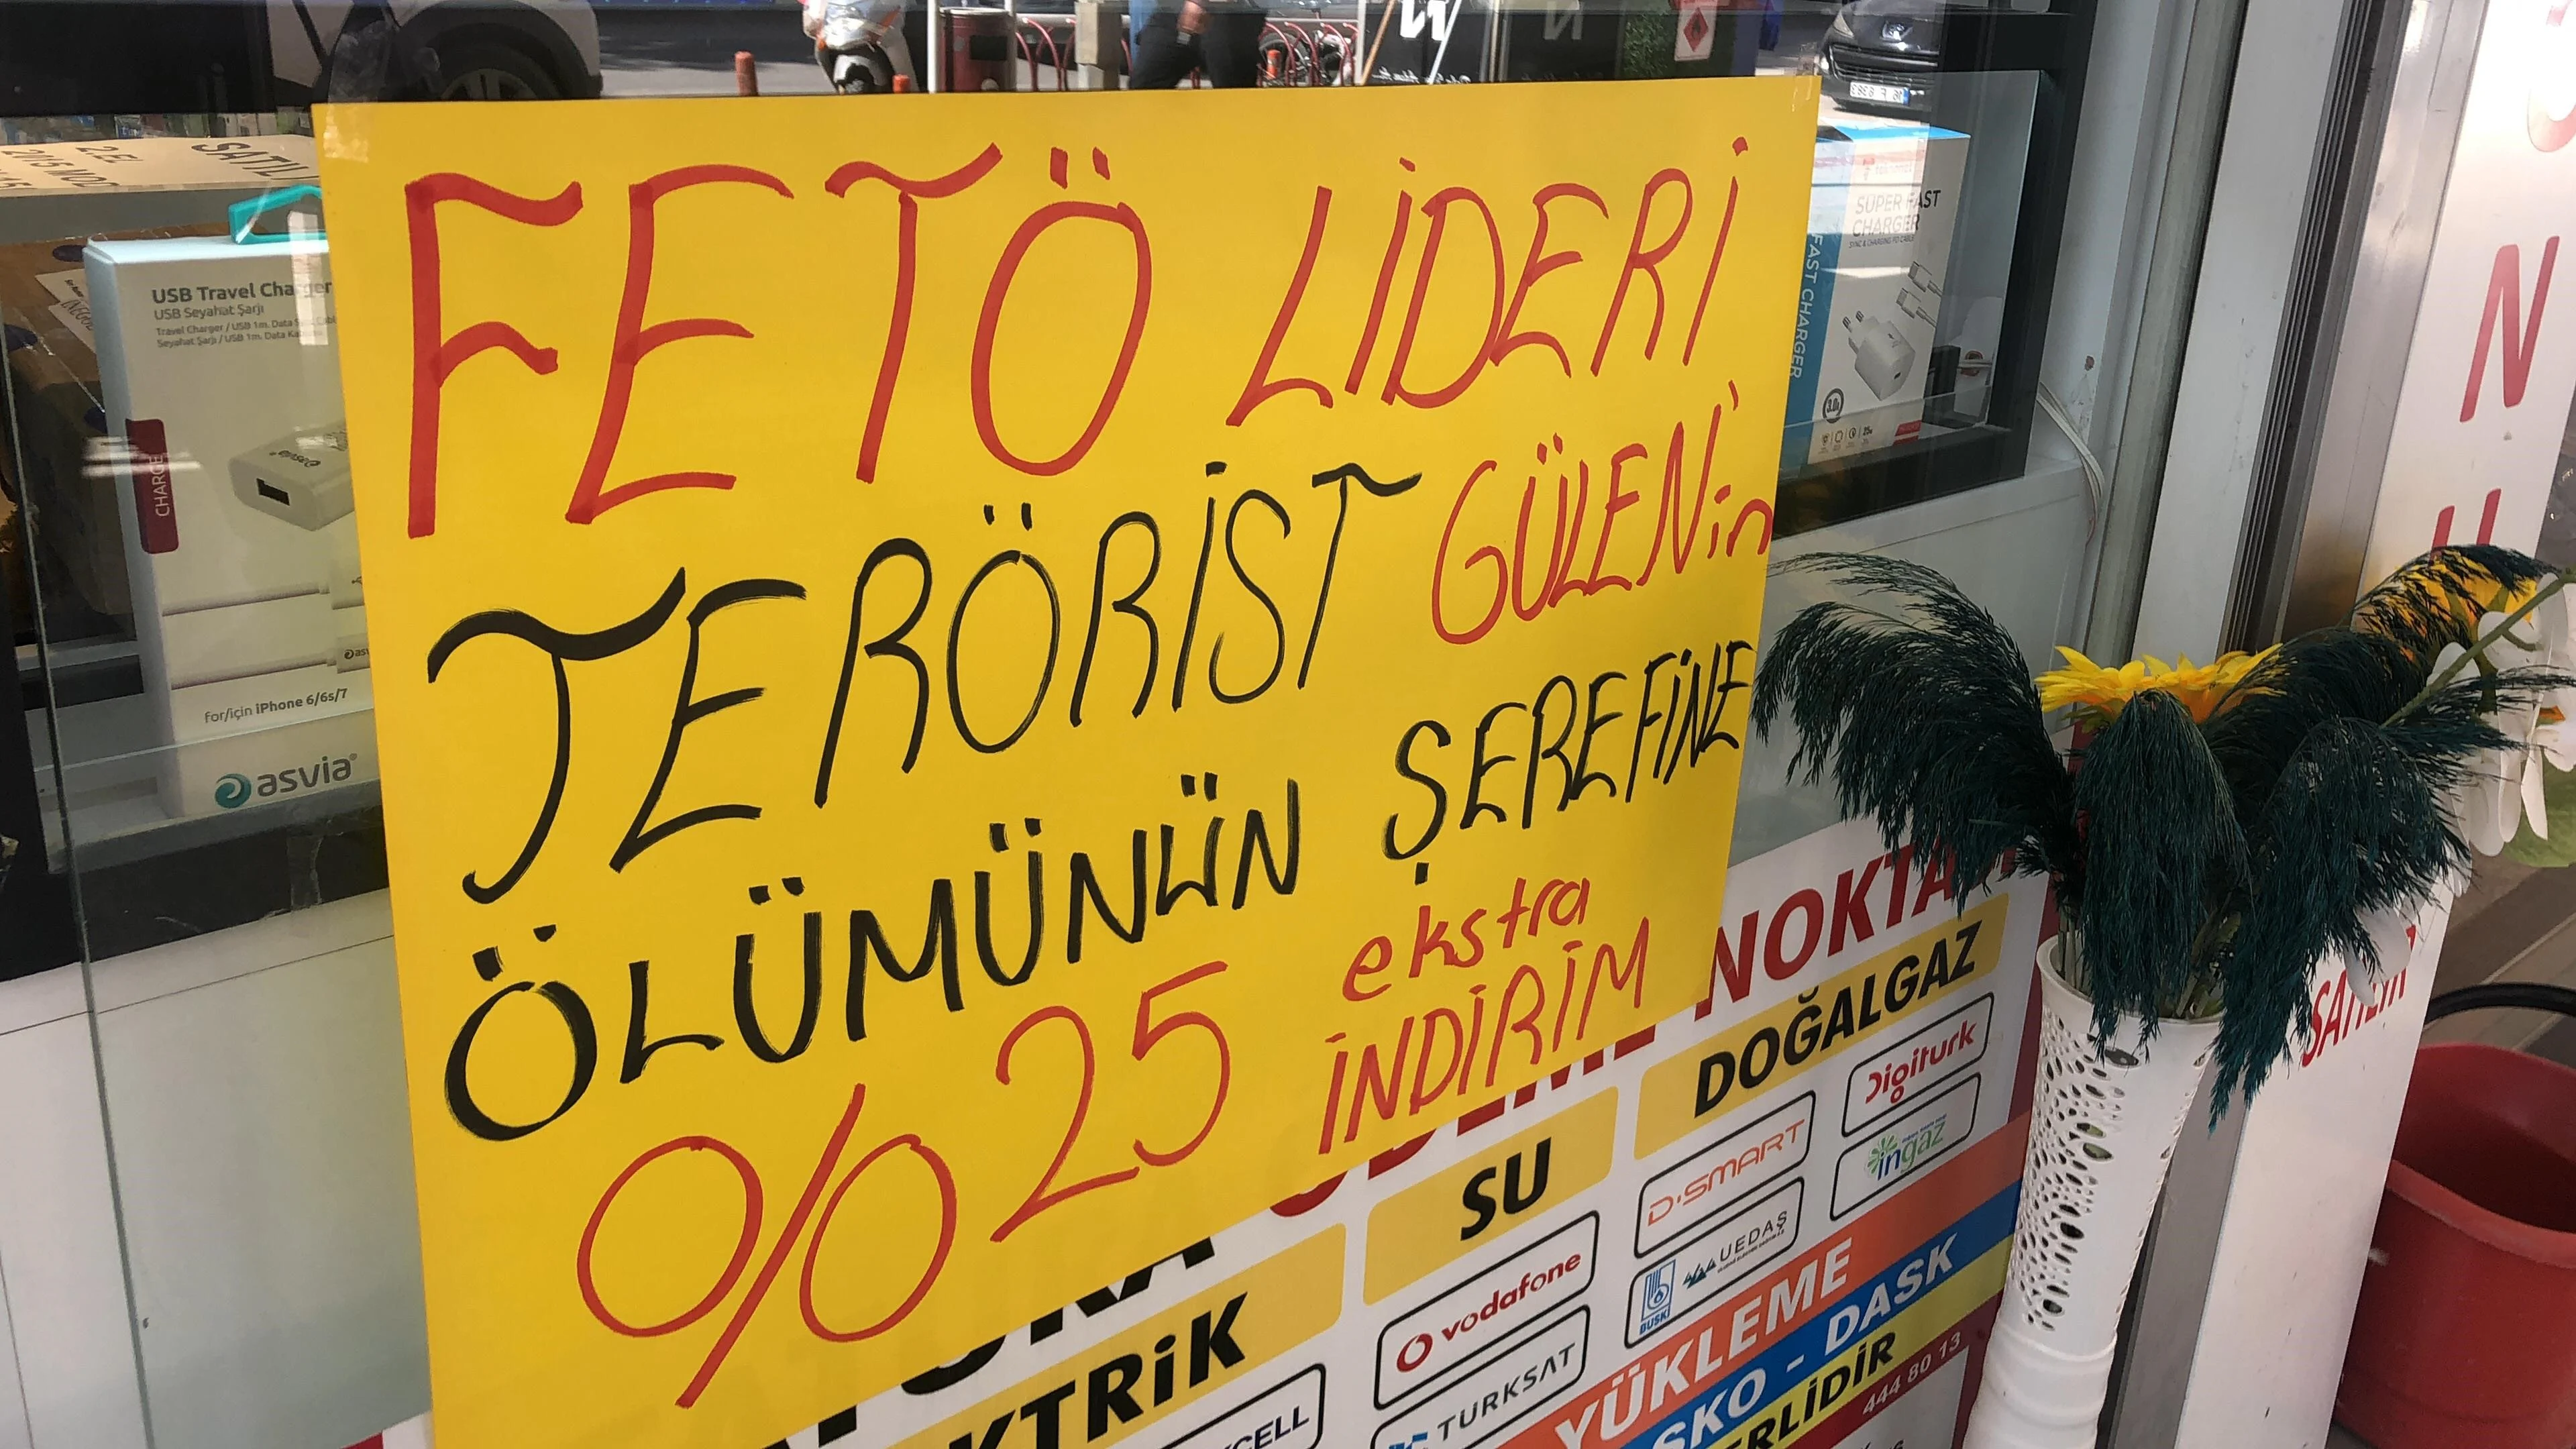 FETÖ LİDERİ
TERÖRİST GÜLEN'in
ÖLÜMÜNÜN ŞEREFİNE
%25 ekstra
İNDİRİM
USB Travel Charger
USB Seyahat Şarjı
Travel Charger / USB 1m. Data
Seyahat Şarjı / USB 1m. Data
CHARGE
for/için iPhone 6/6s/7
asvia
2.EL
SUPER FAST
CHARGER
FAST CHARGER
NOKTA
DOĞALGAZ
SU
Digiturk
D-SMART
ingaz
vodafone
BUSKİ
UEDAŞ
TÜRKSAT
YÜKLEME
DASK
444 80 13